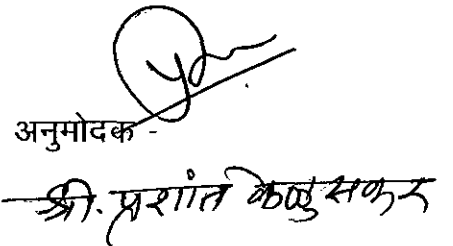 अनुमोदक -
श्री. प्रशांत केळुसकर